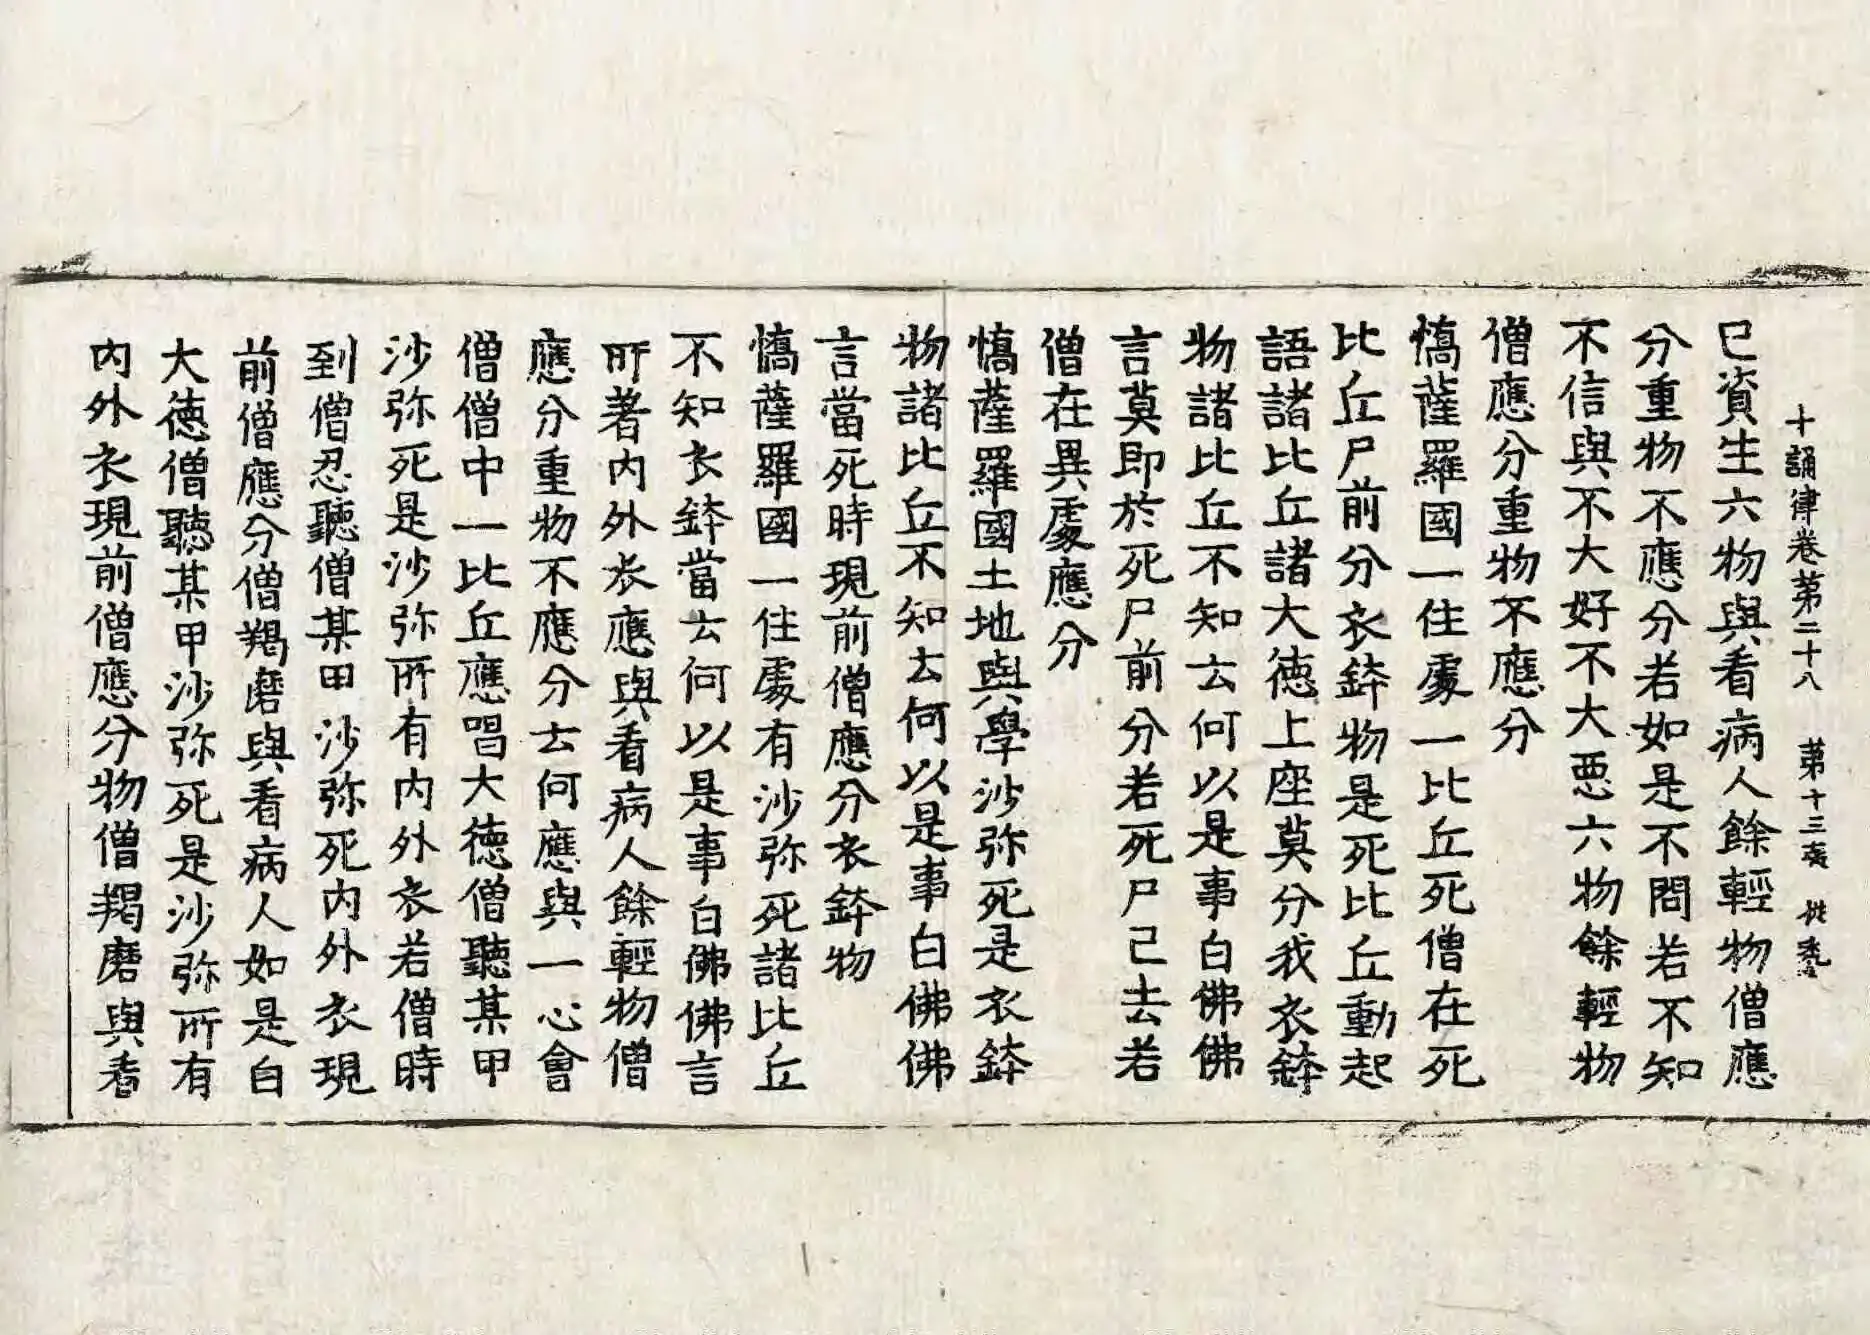 十誦律卷第二十八　第十三張
已資生六物與看病人餘輕物僧應
分重物不應分若如是不問若不知
不信與不大好不大惡六物餘輕物
僧應分重物不應分
憍薩羅國一住處一比丘死僧在死
比丘尸前分衣鉢物是死比丘動起
語諸比丘諸大德上座莫分我衣鉢
物諸比丘不知云何以是事白佛佛
言莫即於死尸前分若死尸已去若
僧在異處應分
憍薩羅國土地與學沙弥死是衣鉢
物諸比丘不知云何以是事白佛佛
言當死時現前僧應分衣鉢物
憍薩羅國一住處有沙弥死諸比丘
不知衣鉢當云何以是事白佛佛言
所著內外衣應與看病人餘輕物僧
應分重物不應分云何應與一心會
僧僧中一比丘應唱大德僧聽某甲
沙弥死是沙弥所有內外衣若僧時
到僧忍聽僧某甲沙弥死內外衣現
前僧應分僧羯磨與看病人如是白
大德僧聽某甲沙弥死是沙弥所有
內外衣現前僧應分物僧羯磨與看